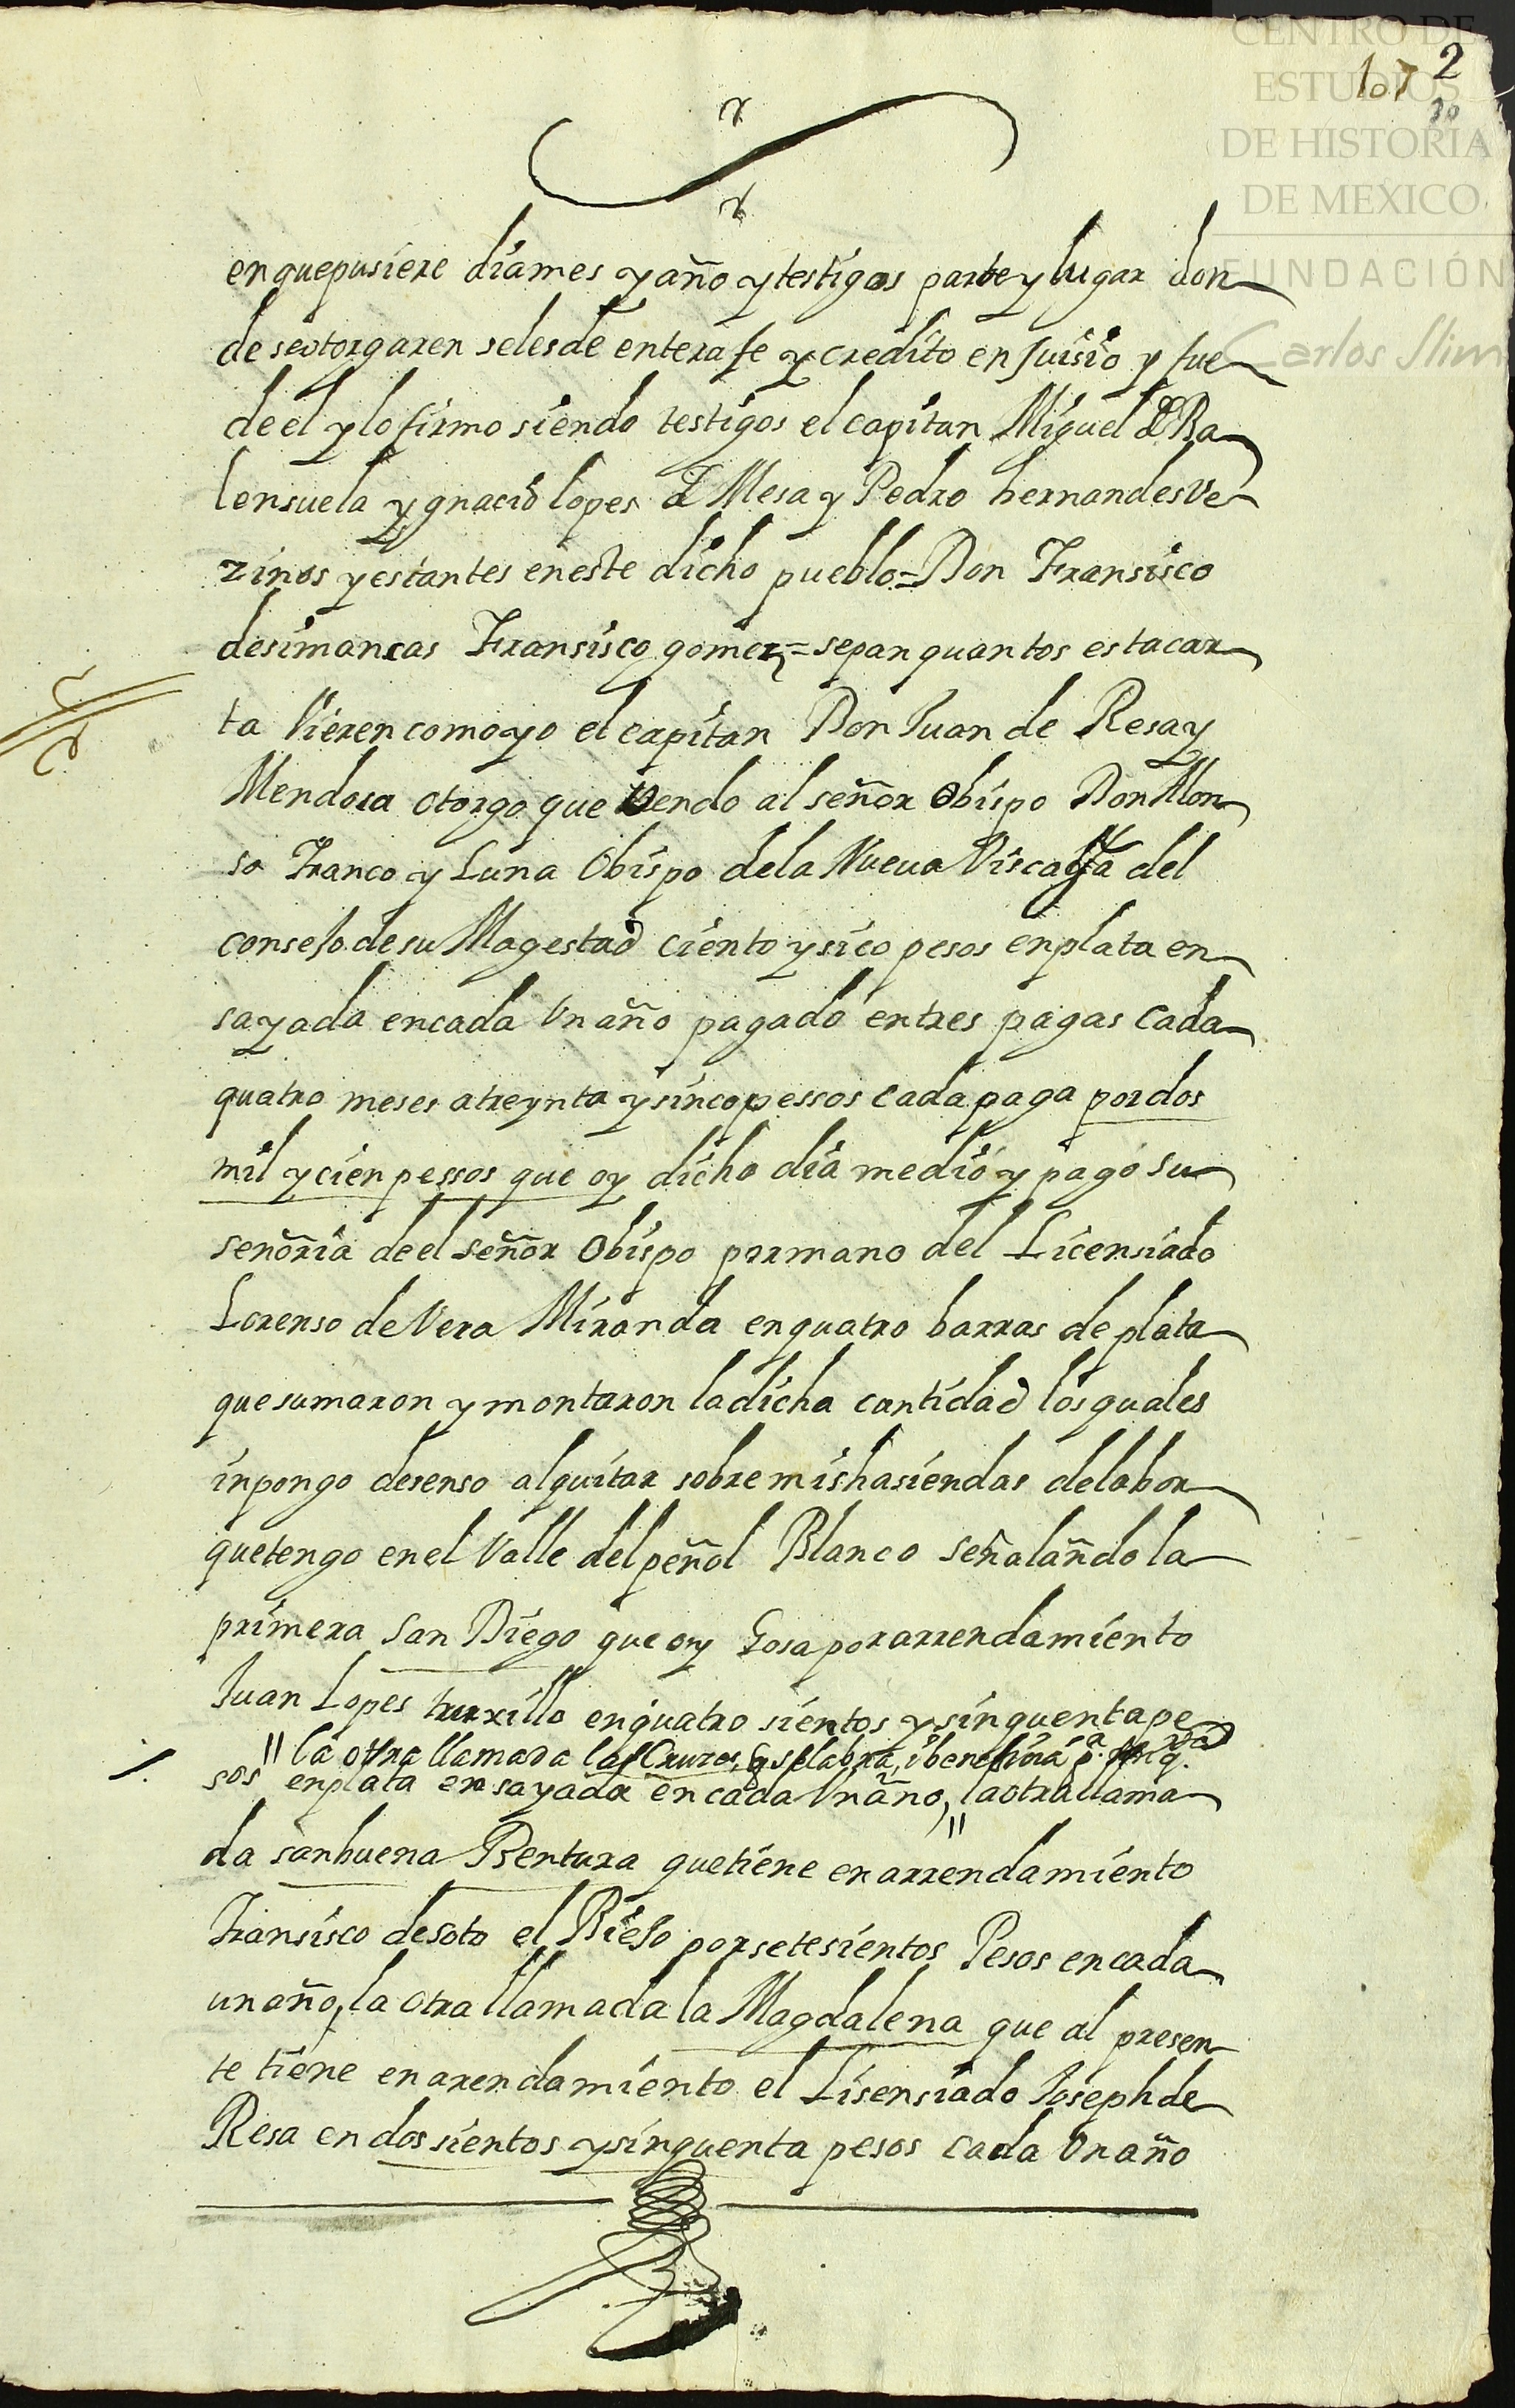 CENTRO DE
ESTUDIOS
DE HISTORIA
DE MEXICO
FUNDACIÓN
Carlos Slim
107 2
en quepusiere diames y año y testigos parte y lugar don
de seotorgaren selesde entera fe y credito en Juisio y fue
de el y lo firmo siendo testigos el capitan Miguel de Ba
lensuela ygnacio lopes de Mesa y Pedro hernandes Ve
zinos y estantes eneste dicho pueblo = Don Fransisco
desimancas Fransisco gomez = sepan quantos esta car
ta Vieren como yo el capitan Don Juan de Resa y
Mendosa otorgo que Vendo al señor Obispo Don Alon
so Franco y Luna Obispo dela Nueua Viscaya del
consejo de su Magestad ciento y sico pesos enplata en
sayada encada Vn año pagado entres pagas cada
quatro meses atreynta y sinco pessos cada paga por dos
mil y cien pessos que oy dicho dia medio y pago su
señoria de el señor Obispo por mano del Licensiado
Lorenso de Vera Miranda en quatro barras de plata
que sumaron y montaron la dicha cantidad los quales
inpongo desenso alquitar sobre mis hasiendas delabor
quetengo en el Valle del peñol Blanco señalañdo la
primera San Diego que oy Gosa por arrendamiento
Juan Lopes truxillo en quatro sientos y sinquenta pe
la otra llamada las Cruzes, q se labra, i beneficia
sos enplata ensayada en cada Vn año, la otra llama
da san buena Bentura quetiene en arrendamiento
Fransisco de soto el Biejo por setesientos Pesos en cada
un año, la otra llamada la Magdalena que al presen
te tiene en arendamiento el Lisensiado Joseph de
Resa en dos sientos y sinquenta pesos cada Vn año